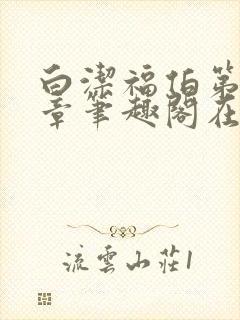 白潔福伯第
章筆趣閣在
流雲山莊1